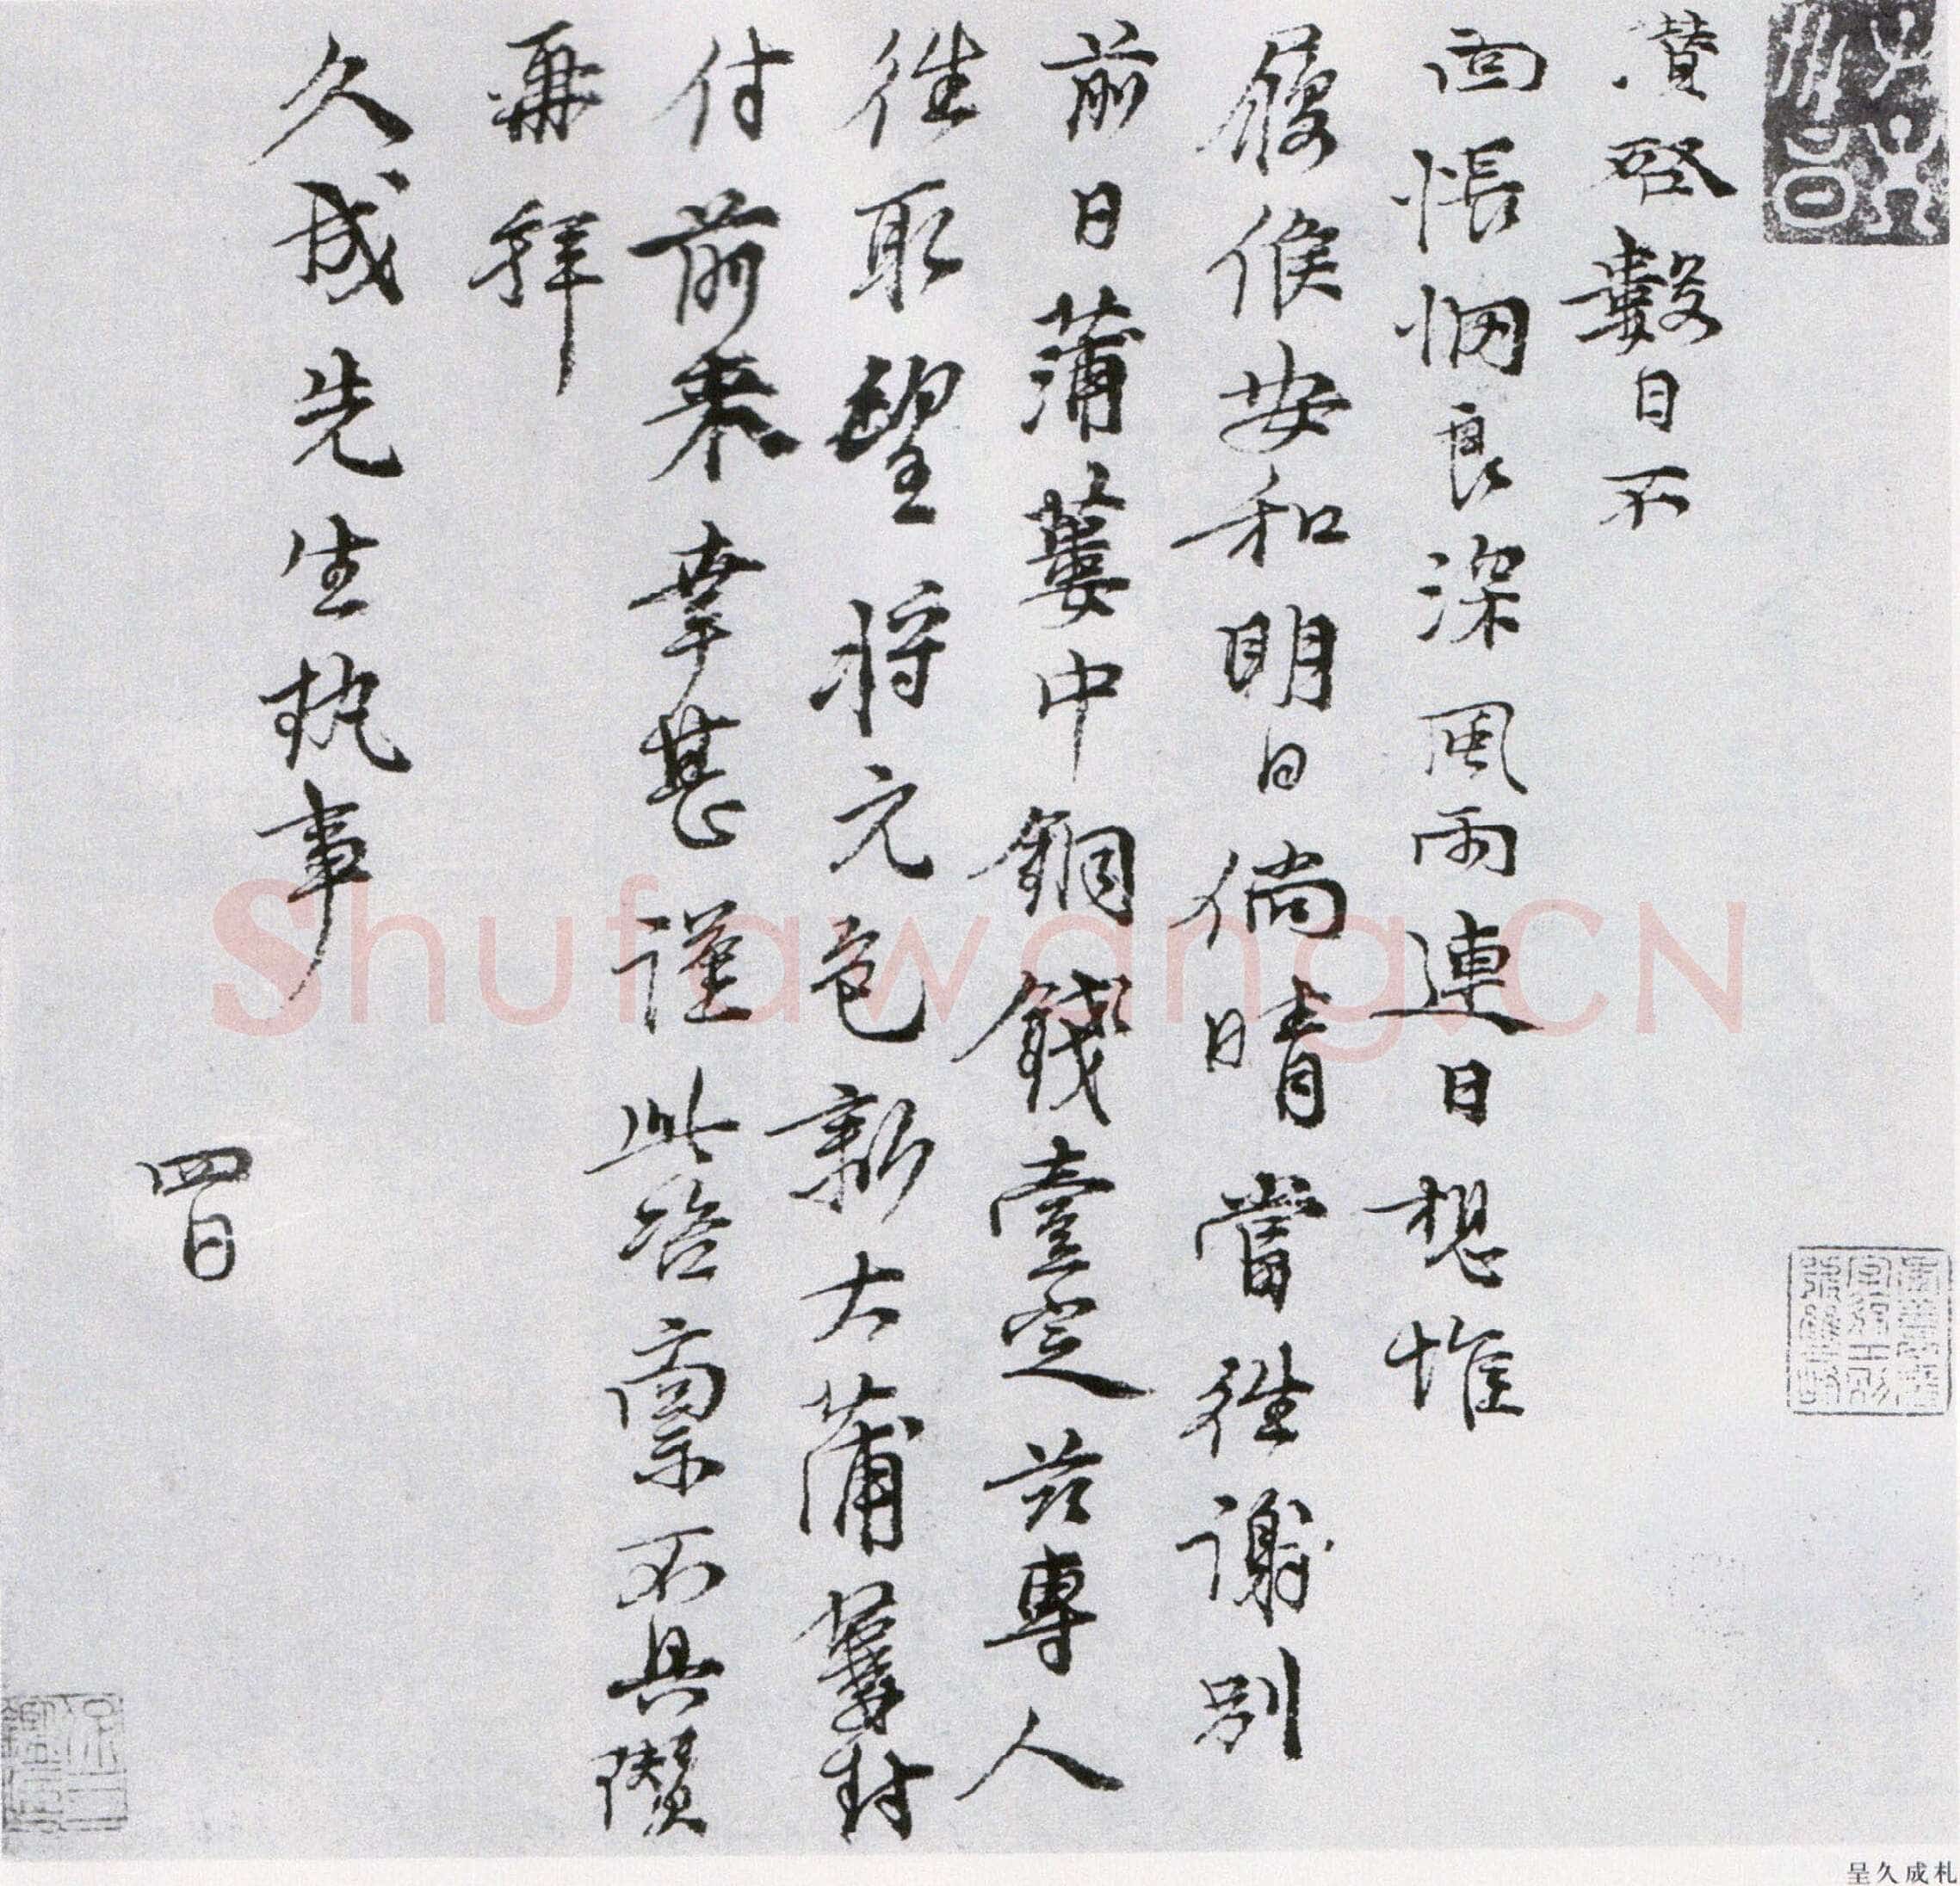 瓚啓數日不
面悵惘良深風雨連日想惟
履候安和明日倘晴當往謝別
前日蒲蔞中銅錢壹定茲專人
往取望將元色新大蒲蔞封
付前来幸甚謹此咨稟不具瓚
再拜
久成先生執事
四日
Shufawang.CN
呈久成札